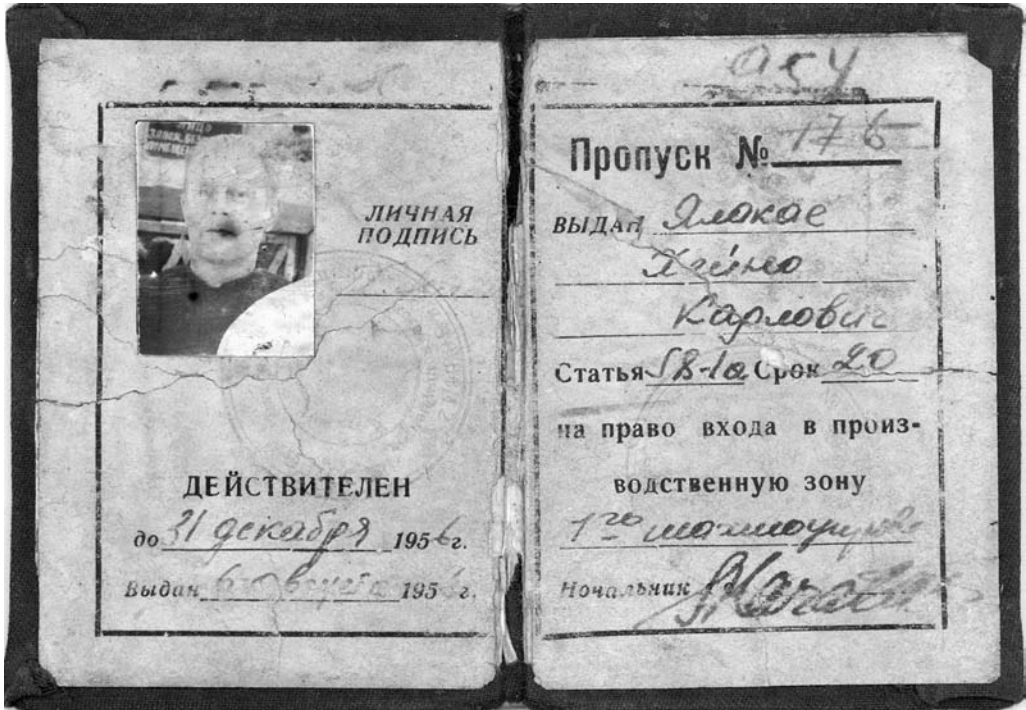 ЛИЧНАЯ
ПОДПИСЬ
ДЕЙСТВИТЕЛЕН
до 31 декабря 1956г.
Выдан 6 августа 1956г.
Пропуск № 176
ВЫДАН Ялакас
Хейно
Карлович
Статья 58-1а Срок 20
на право входа в произ-
водственную зону
1го
Начальник